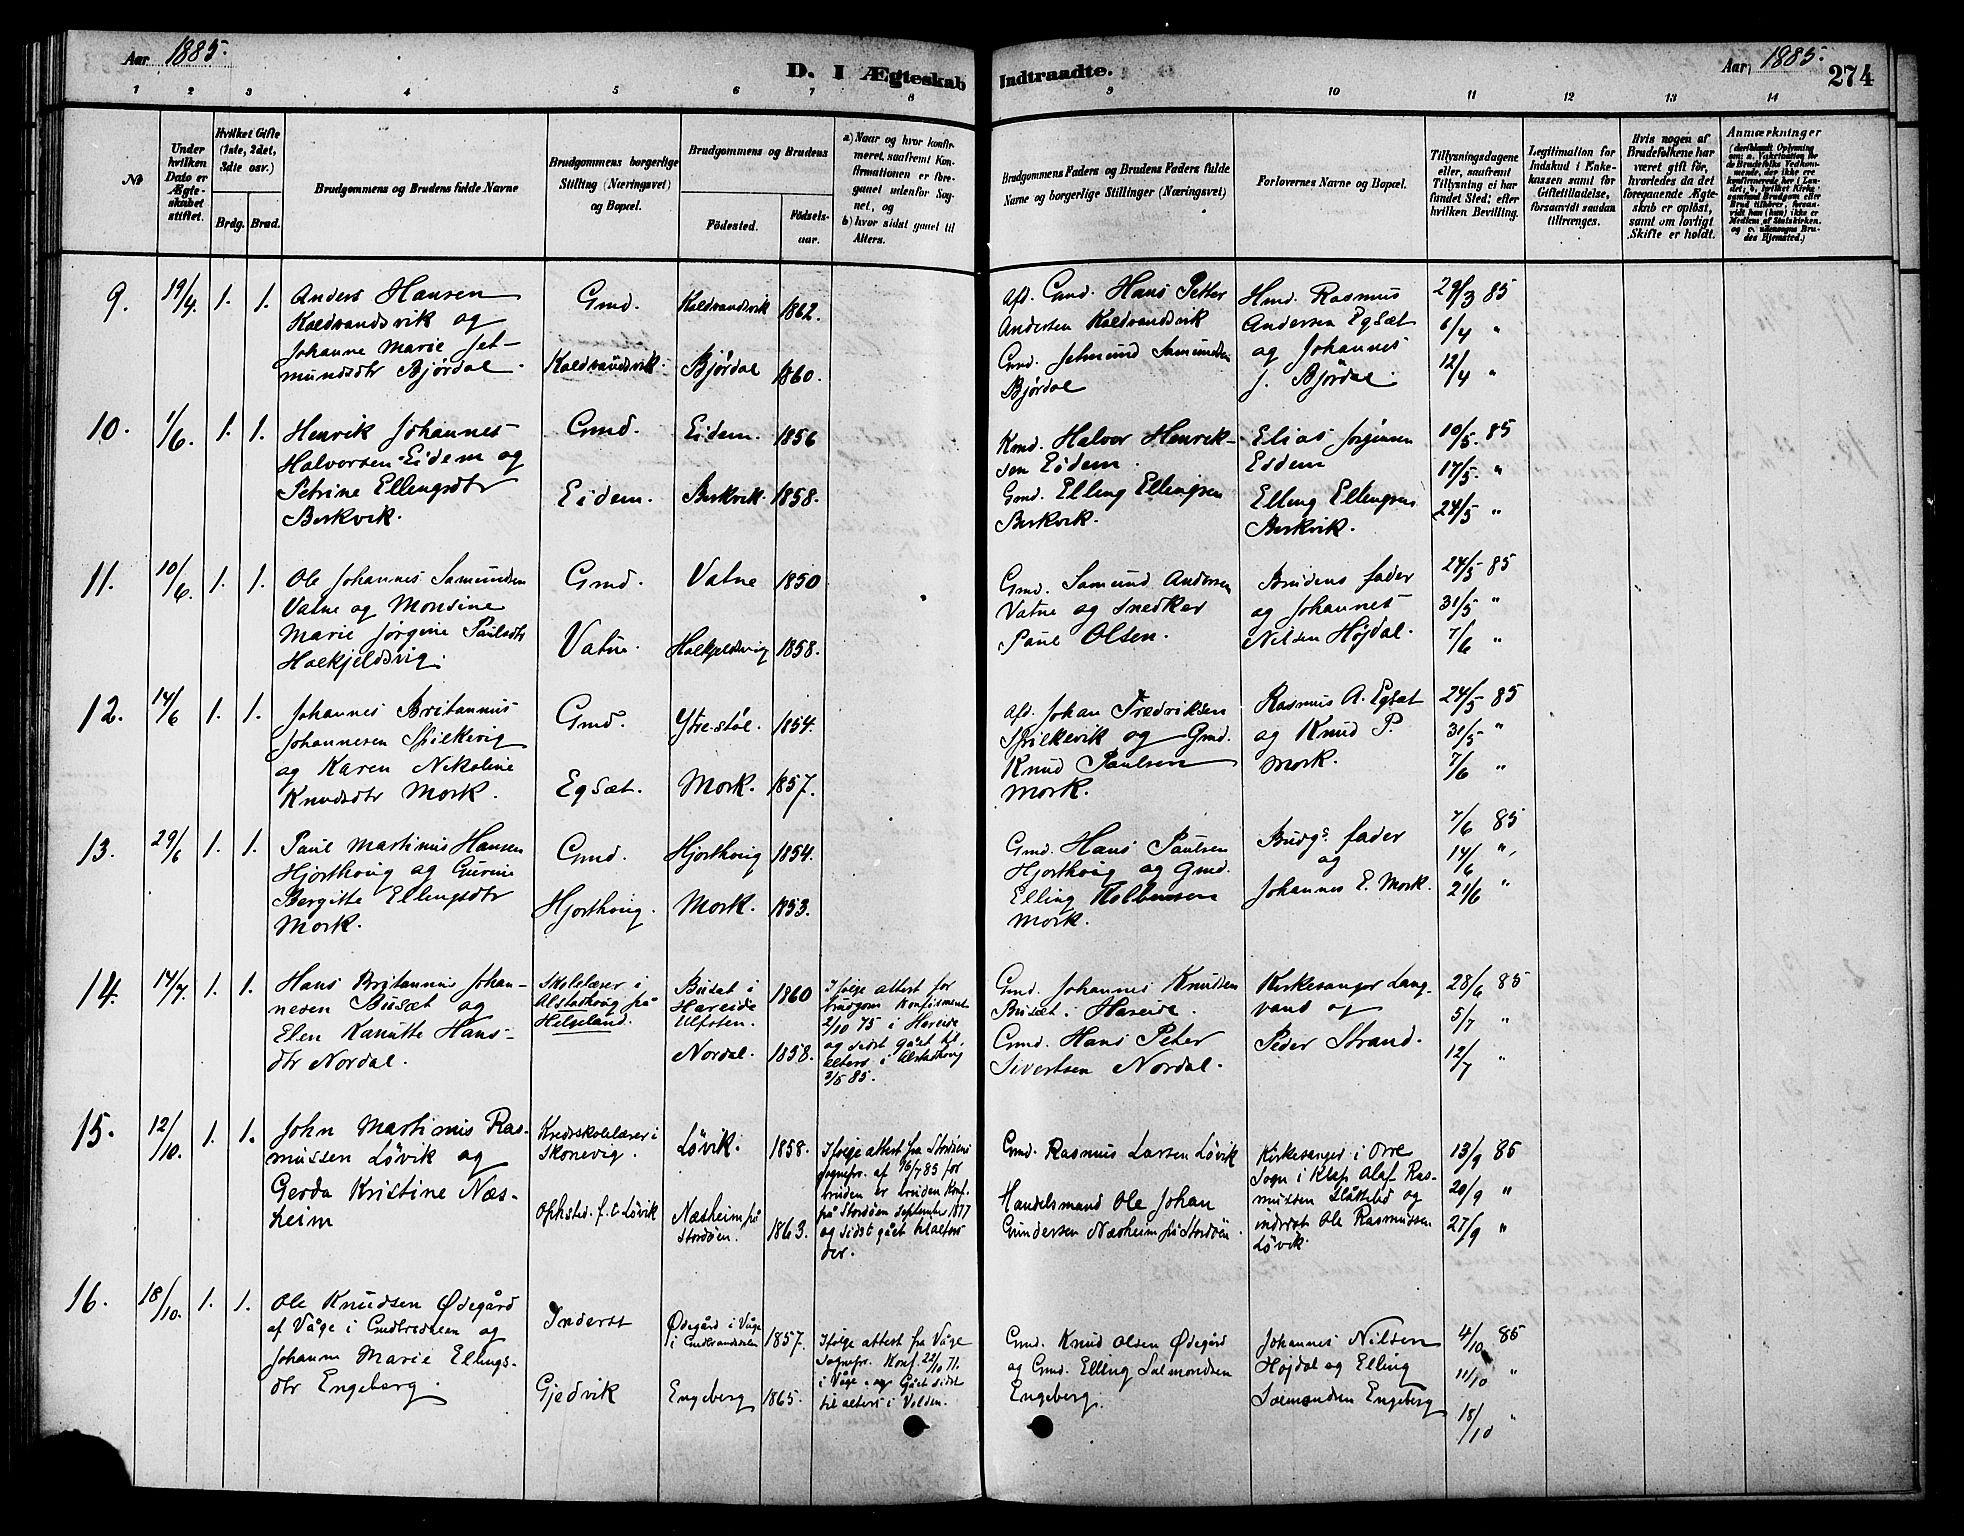 Aar 1885.
D. I Ægteskab Indtraadte.
Aar 1885.
274
1 2 3 4 5 6 7 8 9 10 11 12 13 14
No
Under hvilken Dato er Ægteskabet stiftet.
Hvilket Gifte (1ste, 2det, 3die osv.)
Brdg. Brud.
Brudgommens og Brudens fulde Navne
Brudgommens borgerlige Stilling (Næringsvei) og Bopæl.
Brudgommens og Brudens
Fødested.
Fødselsaar.
a) Naar og hvor konfirmeret, saafremt Konfirmationen er foregaaet udenfor Sognet, og
b) hvor sidst gaaet til Alters.
Brudgommens Faders og Brudens Faders fulde Navne og borgerlige Stillinger (Næringsvei)
Forlovernes Navne og Bopæl.
Tillysningsdagene eller, saafremt Tillysning ei har fundet Sted; efter hvilken Bevilling.
Legitimation for Indskud i Enkekassen samt for Giftetilladelse, forsaavidt saadan tiltrænges.
Hvis nogen af Brudefolkene har været gift før, hvorledes da det foregaaende Ægteskab er opløst, samt om lovligt Skifte er holdt.
Anmærkninger
9. 19/4. 1. 1.
Anders Hansen
Koldvandsvik og
Johanne Marie Jet-
mundsdtr Bjørdal.
Gmd.
Koldvandsvik.
Koldvandsvik 1862.
Bjørdal 1860.
Afd. Gmd. Hans Petter
Andersen Koldvandsvik
Gmd. Jetmund Samundsen
Bjørdal
Hmd. Rasmus
Andersen Egsæt
og Johannes
J. Bjørdal.
29/3 85
6/4 "
12/4 "
10. 1/6. 1. 1.
Henrik Johannes
Halvorsen Eidem og
Petrine Ellingsdtr
Berkvik.
Gmd.
Eidem.
Eidem. 1856
Berkvik. 1858.
Kmd. Halvor Henrik-
sen Eidem.
Gmd. Elling Ellingsen
Berkvik.
Elias Jørgensen
Eidem
Elling Ellingsen
Berkvik.
10/5. 85
17/5. "
24/5 "
11. 10/6. 1. 1.
Ole Johannes Samundsen
Vatne og Monsine
Marie Jørgine Paulsdtr
Holkjeldsvig.
Gmd.
Vatne.
Vatne 1850
Holkjeldsvig 1858.
Gmd. Samund Andersen
Vatne og Snedker
Paul Olsen.
Brudens fader
og Johannes
Nilsen Højdal.
24/5 85
31/5 "
7/6 "
12. 14/6 1. 1.
Johannes Britannus
Johannesen Spilkevig
og Karen Nikoline
Knudsdtr Mork.
Gmd.
Egsæt.
Ytrestøl. 1854.
Mork. 1857.
Afd. Johan Fredriksen
Spilkevik og Gmd.
Knud Paulsen
Mork.
Rasmus A. Egsæt
og Knud P.
Mork.
24/5 85
31/5 "
7/6 "
13. 29/6 1. 1.
Paul Martinus Hansen
Hjorthvig og Gurine
Bergitte Ellingsdtr
Mork.
Gmd.
Hjorthvig.
Hjorthvig 1854.
Mork. 1853.
Gmd. Hans Paulsen
Hjorthvig og Gmd.
Elling Kolbensen
Mork.
Brudgs. fader
og
Johannes E. Mork.
7/6 85
14/6 "
21/6 "
14. 14/7. 1. 1.
Hans Britannus Johan-
nesen Busæt og
Elen Kanutte Hans-
dtr Nordal.
Skolelærer i
Alstadhoug på
Helgeland.
Busæt i
Hareide
Ulfsten. 1860
Nordal. 1858.
Ifølge attest for
brudgom konfirment
2/10 75 i Hareide
og sidst gået til
alters i Alstadhoug
3/5 85.
Gmd. Johannes Knudsen
Busæt. Hareide.
Gmd. Hans Peter
Sivertsen Nordal.
Kirkesanger Lang-
vand og
Peder Strand.
28/6 85
5/7 "
12/7 "
15. 12/10. 1. 1.
John Martinus Ras-
mussen Løvik og
Gerda Kristine Næs-
heim
Kredsskolelærer i
Skonevig.
Opholdsd. f. t. Løvik
Løvik. 1858.
Næsheim på
Stordøen. 1863.
Ifølge attest fra Stordøens
sognepr. af 16/7 85 for
bruden er bruden konf.
på Stordøen september 1877
og sidst gået til alters
der.
Gmd. Rasmus Larsen Løvik
Handelsmand Ole Johan
Gundersen Næsheim på Stordøen.
Kirkesanger i Orre
Sogn i Klep Olaf Ras-
mussen Slåttelid og
inderst Ole Rasmussen
Løvik.
13/9 85
20/9 "
27/9 "
16. 18/10. 1. 1.
Ole Knudsen Ødegård
af Våge i Gudbrdalen og
Johanne Marie Ellings-
dtr Engeberg.
Inderst
Gjedvik
Ødegård i Våge
i Gudbrandsdalen 1857.
Engeberg 1865.
Ifølge attest fra Våge
Sognepr. Konf. 22/10 71.
i Våge og Gået sidst
til alters i Volden.
Gmd. Knud Olsen Ødegård
og Gmd. Elling Salmondsen
Engeberg.
Johannes Nilsen
Højdal og Elling
Salmondsen Engeberg
4/10 85
11/10 "
18/10 "